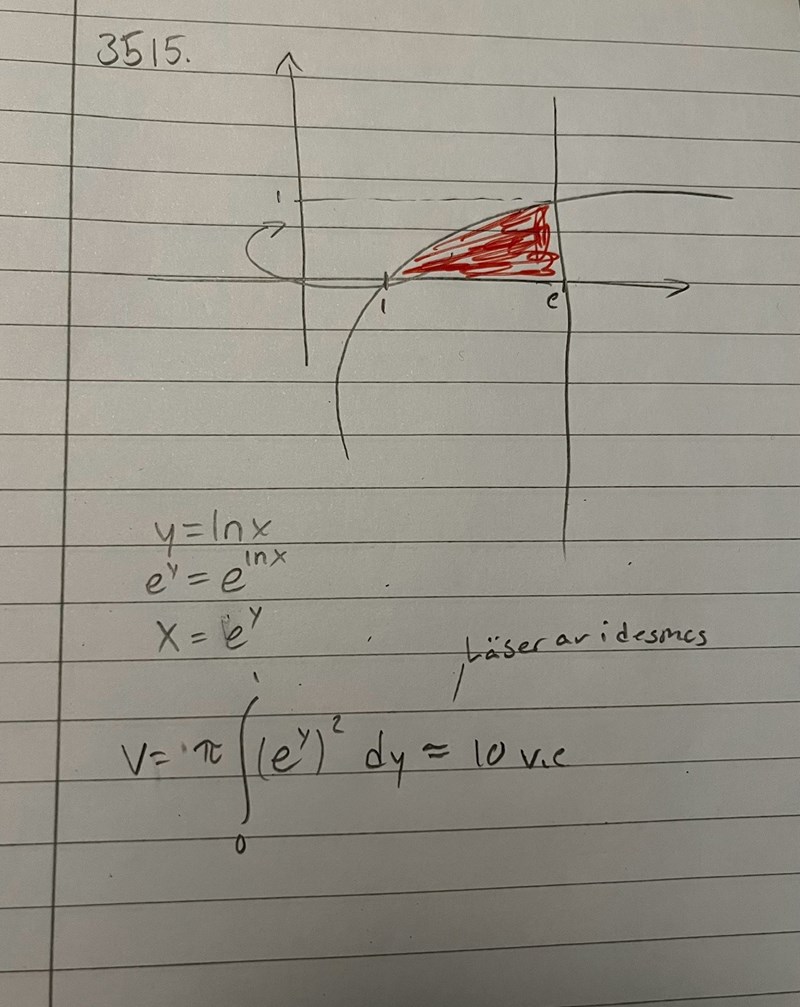 3515.
1
1
e
y = ln x
e^y = e^{ln x}
x = e^y
Läser av i desmos
V = π ∫_0^1 (e^y)^2 dy ≈ 10 v.e